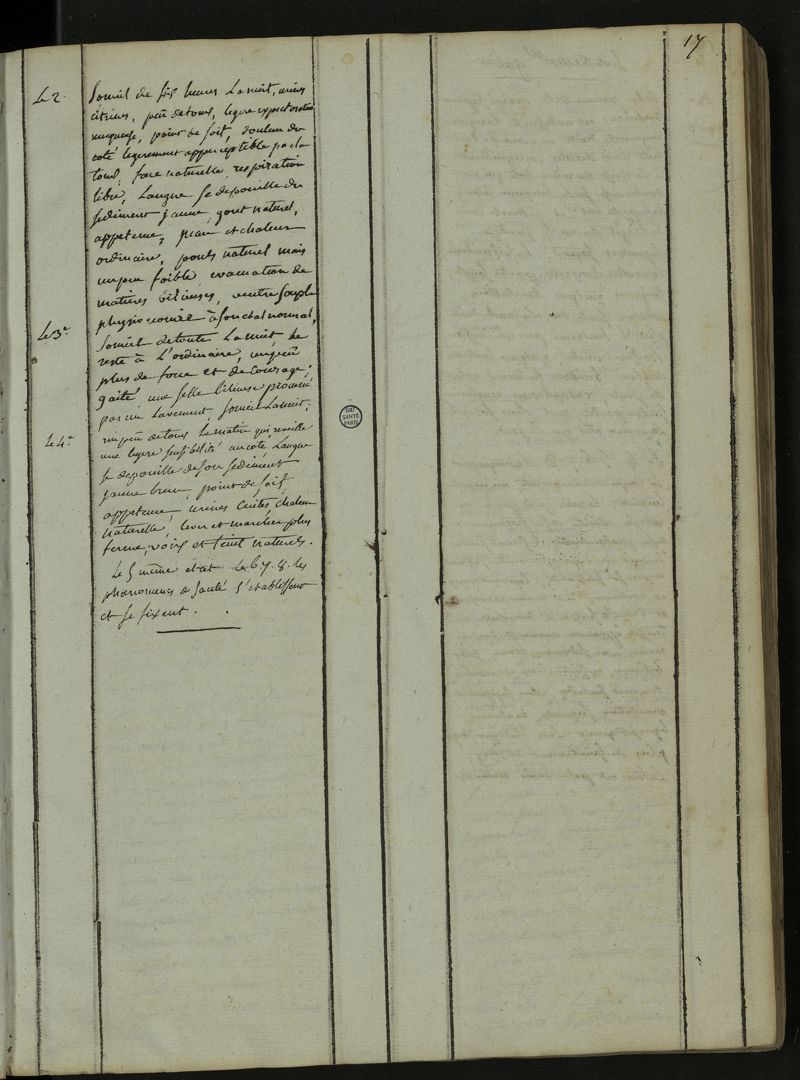 17
Le 2. Someil de six heures La nuit, urines
citrines, peu de toux, legere expectoration
muqueuse, point de soif, douleur du
coté legerement apperceptible par la
toux, face naturelle, respiration
libre, Langue se depouille du
sediment jaune, gout naturel,
appetence, peau et chaleur
ordinaire, pouls naturel mais
un peu foible, evacuation de
matieres bilieuses, ventre souple
physionomie à son etat normal,
Le 3e Someil de toute La nuit le
reste à L'ordinaire, un peu
plus de force et de courage,
gaité, une selle bilieuse procurée
par un Lavement, someil La nuit;
Le 4e un peu de toux Le matin qui reveille
une legere sensibilité au coté Langue
se depouille de son sediment
jaune brun, point de soif
appetence, urines cuites, chaleur
naturelle, lever et marcher plus
ferme, voix et teint naturels.
Le 5 même etat Le 6. 7. 8. les
phœnomenes de santé s'etablissent
et se fixent.
BIU
SANTÉ
PARIS